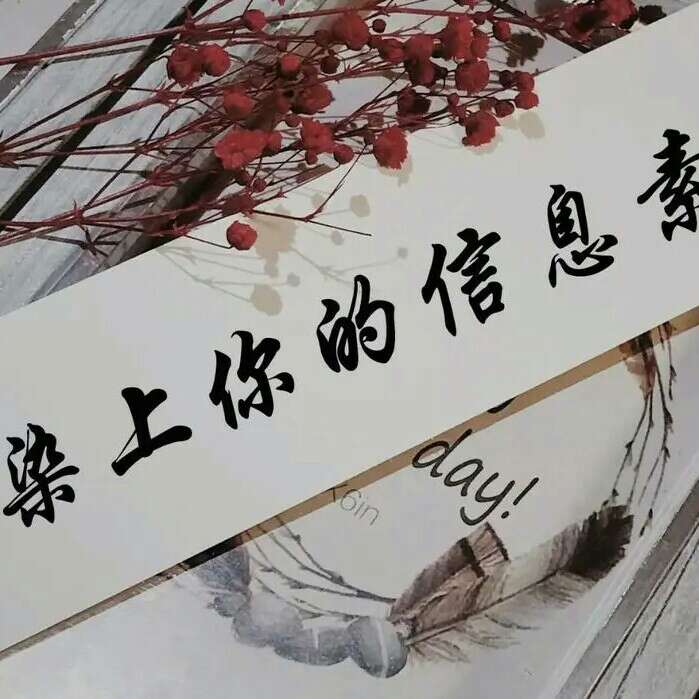 染上你的信息素
day!
16in